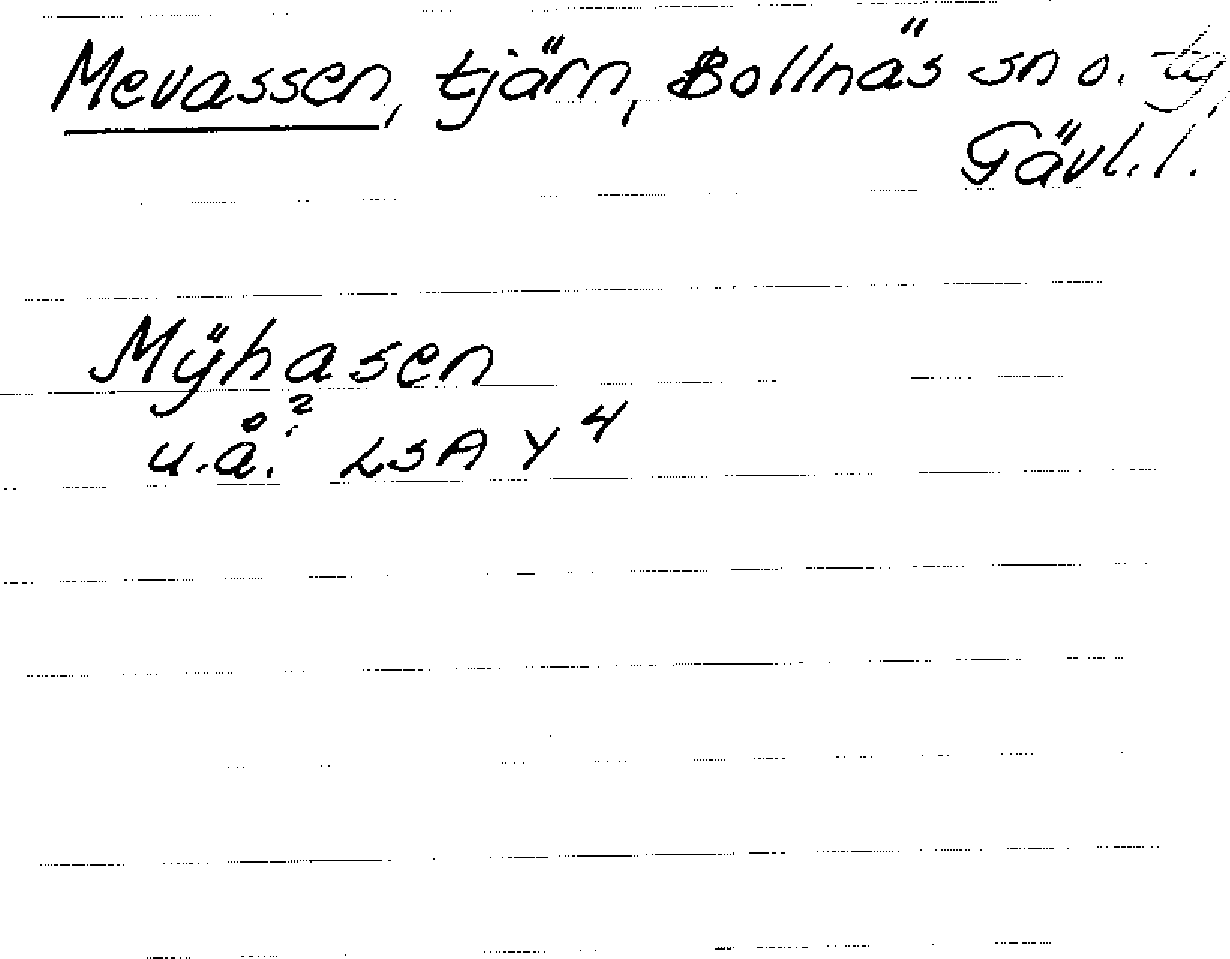 Mevassen, tjärn, Bollnäs sn o. tg,
Gävl.l.
Mÿhasen
u.å.? LSA Y 4